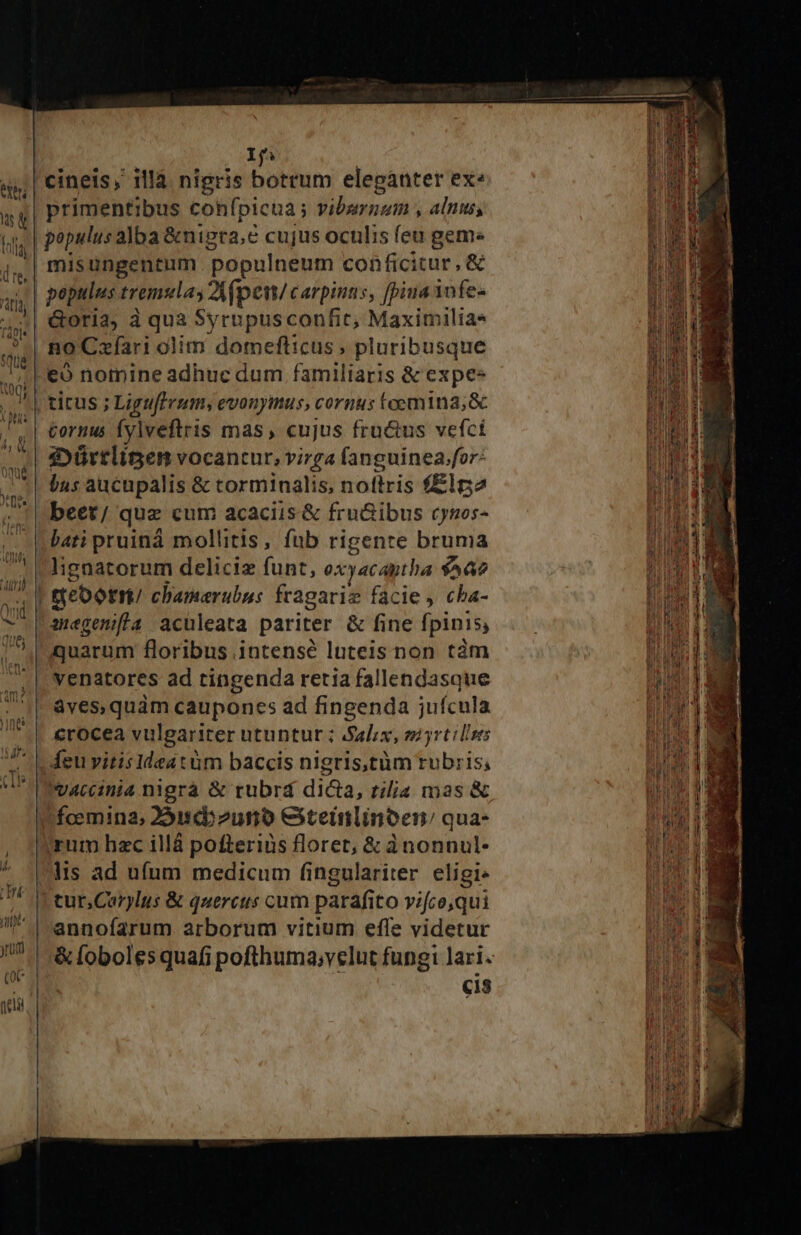 cineis, illâ nigris botrum eleganter ex-
primentibus conſpicua; viburnum, alnus,
populus alba & nigra, è cujus oculis ſeu gem-
mis ungentum populneum conficitur, &
populus tremula, Aſpen/ carpinus, ſpina infe-
ctoria, à qua Syrupus confit, Maximilia-
no Cæſari olim domeſticus, pluribusque
eò nomine adhuc dum familiaris & expe-
titus; Liguſtrum, evonymus, cornus fœmina, &
cornus ſylveſtris mas, cujus fructus veſci
Dürtlitzen vocantur, virga ſanguinea, ſor-
bus aucupalis & torminalis, noſtris Eltz-
beer/ quæ cum acaciis & fructibus cynos-
bati pruinâ mollitis, ſub rigente bruma
lignatorum deliciæ ſunt, oxyacantha
chamærubus fragariæ facie, cha-
mægeniſta aculeata pariter & ſine ſpinis,
quarum floribus intensè luteis non tàm
venatores ad tingenda retia fallendasque
aves, quàm caupones ad fingenda juſcula
crocea vulgariter utuntur; Salix, myrtillus
ſeu vitis Idea tùm baccis nigris, tùm rubris,
vaccinia nigra & rubra dicta, tilia mas &
fœmina, Buch- und Steinlinden/ qua-
rum hæc illâ poſteriùs floret, & à nonnul-
lis ad uſum medicum ſingulariter eligi-
tur, Corylus & quercus cum paraſito viſco, qui
annoſarum arborum vitium eſſe videtur
& ſoboles quaſi poſthuma, velut fungi lari-
cis